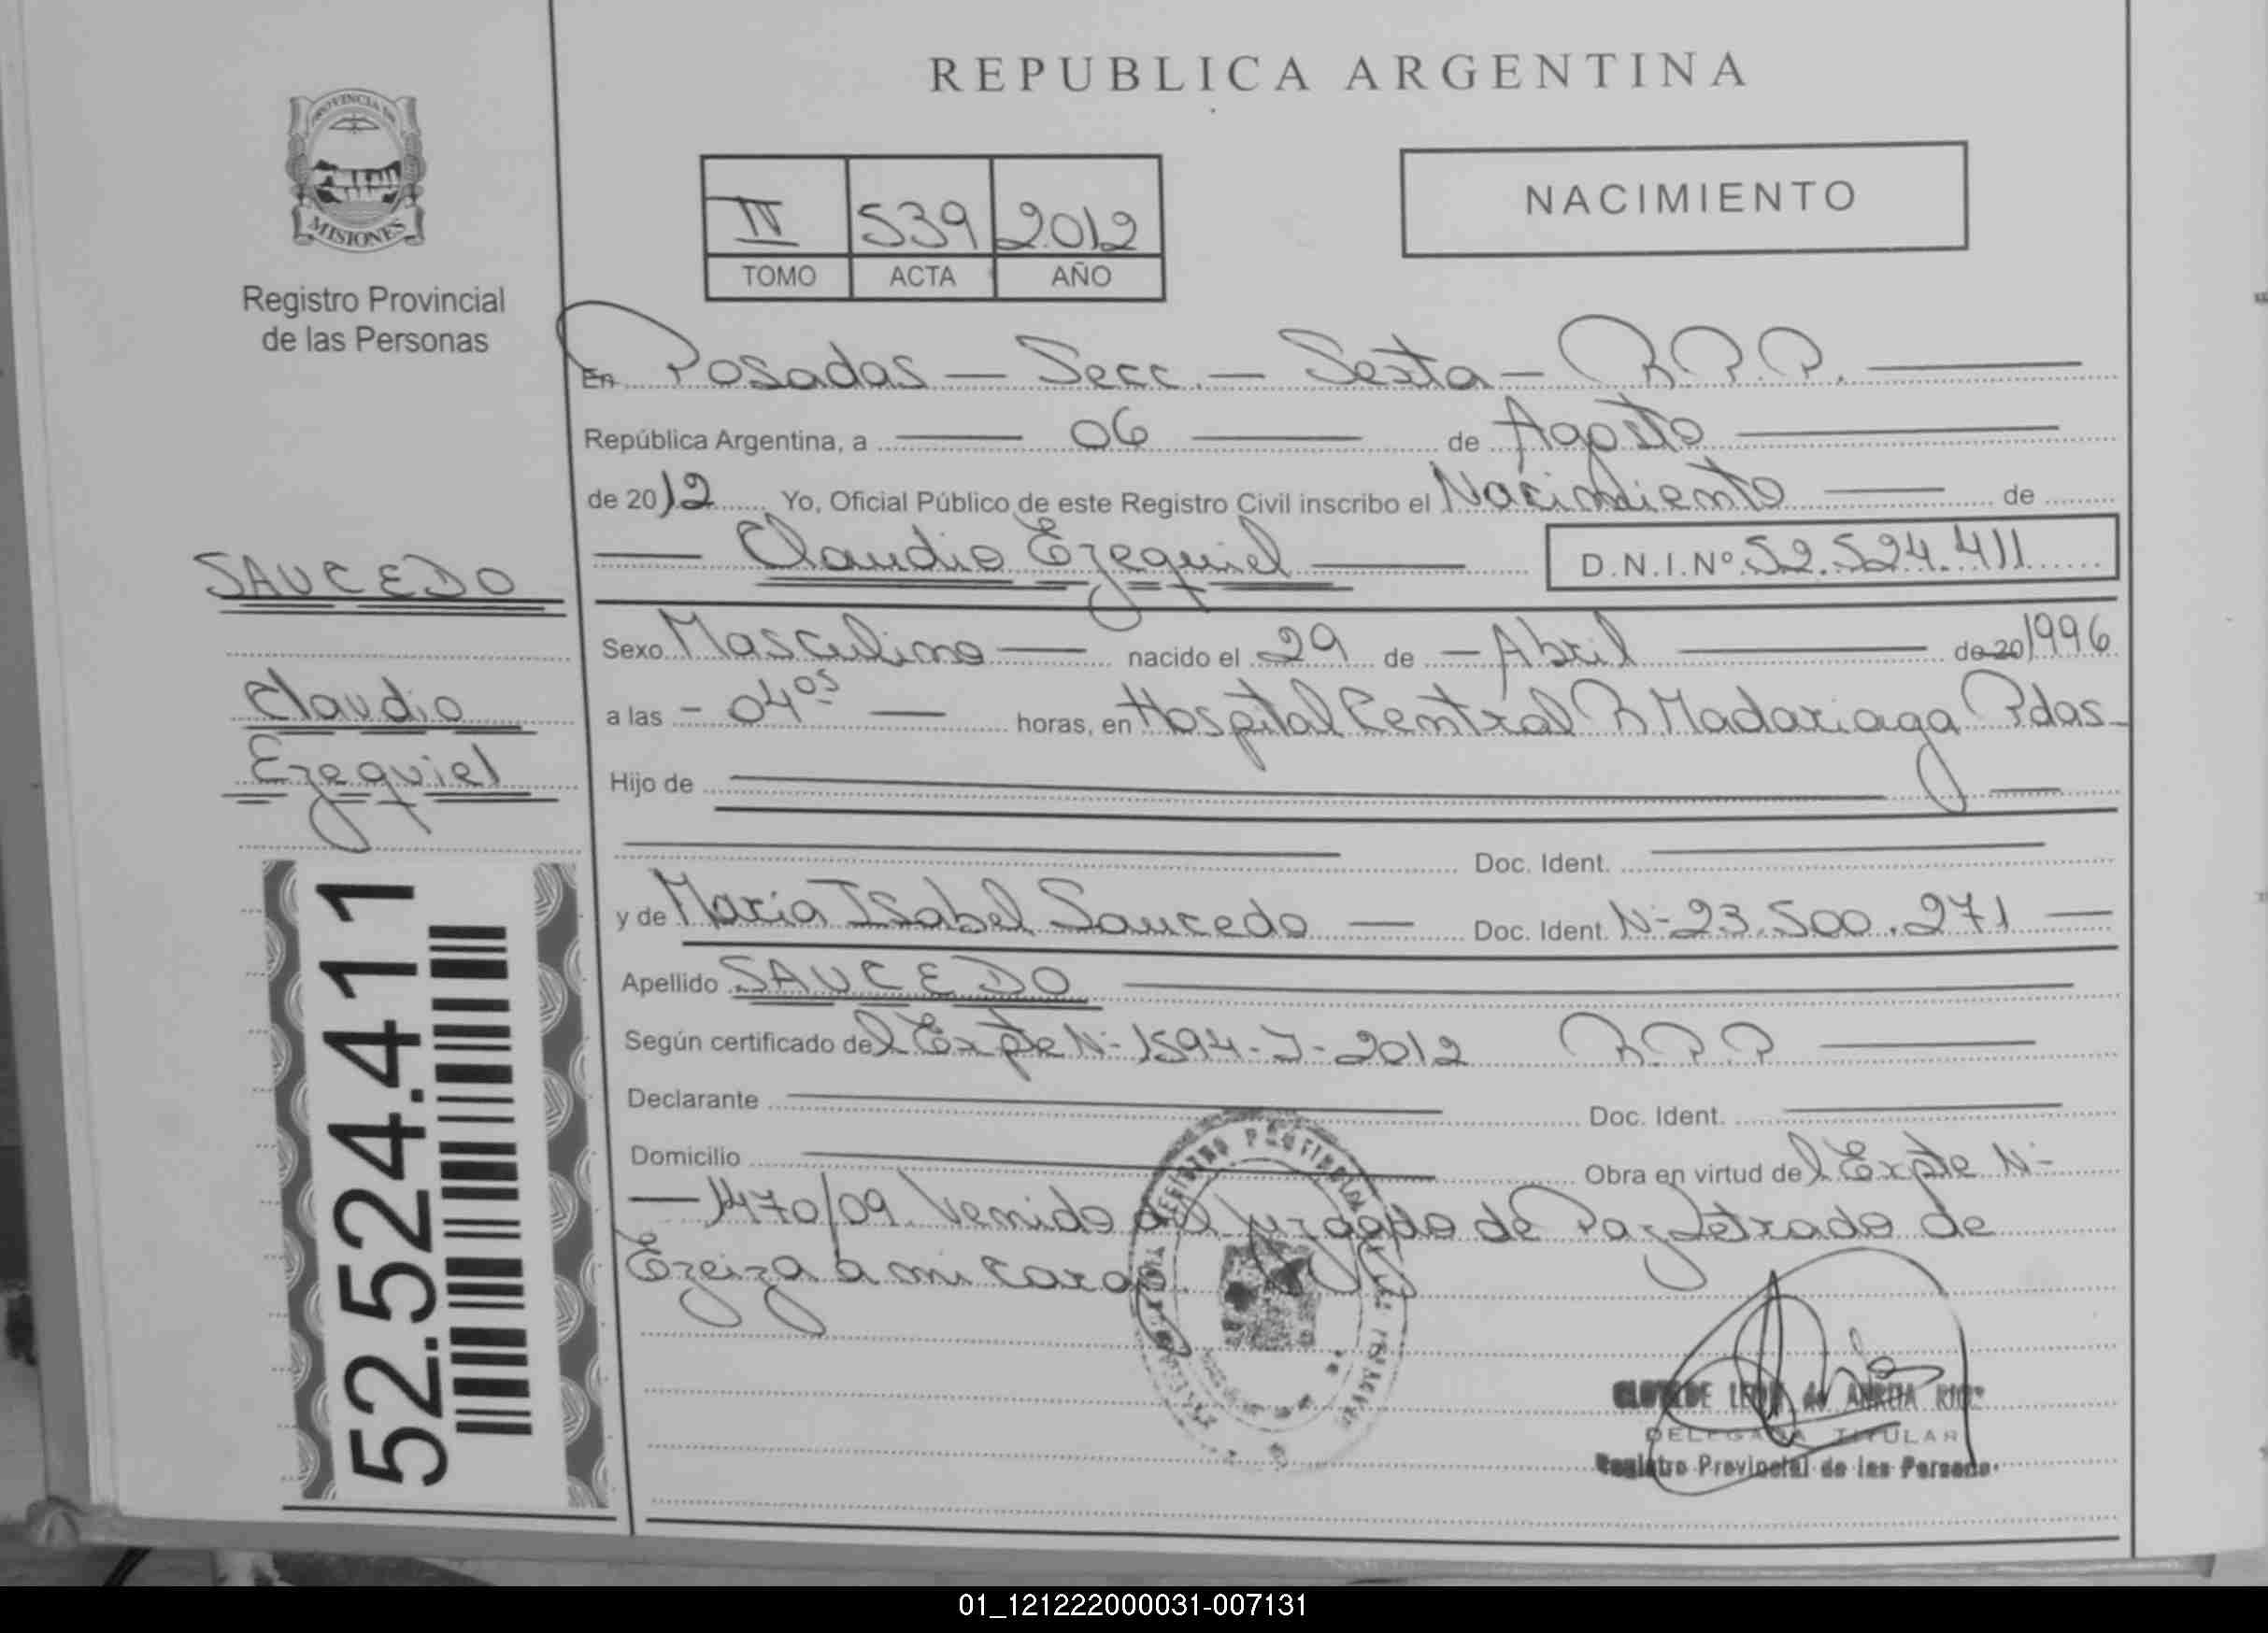 REPUBLICA ARGENTINA
PROVINCIA DE
MISIONES
Registro Provincial
de las Personas
IV 539 2012
TOMO ACTA AÑO
NACIMIENTO
En Posadas – Secc. – Sexta – R.P.P.
República Argentina, a 06 de Agosto
de 2012 Yo, Oficial Público de este Registro Civil inscribo el Nacimiento de
Claudio Ezequiel D.N.I. Nº 52.524.411
SAUCEDO
Claudio
Ezequiel
52.524.411
Sexo Masculino nacido el 29 de – Abril de 20 1996
a las – 04 05 horas, en Hospital Central R. Madariaga Pdas
Hijo de
Doc. Ident.
y de Maria Isabel Saucedo Doc. Ident. Nº 23.500.271
Apellido SAUCEDO
Según certificado del Expte Nº 1594-J-2012 R.P.P
Declarante Doc. Ident.
Domicilio Obra en virtud del Expte Nº
1470/09 Venido del Juzgado de Paz Letrado de
Ezeiza a mi cargo.
DELEGADA TITULAR
Registro Provincial de las Personas
01_121222000031-007131